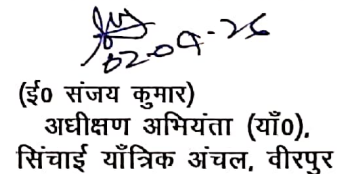 02-09-26
(ई० संजय कुमार)
अधीक्षण अभियंता (याँ०),
सिंचाई याँत्रिक अंचल, वीरपुर